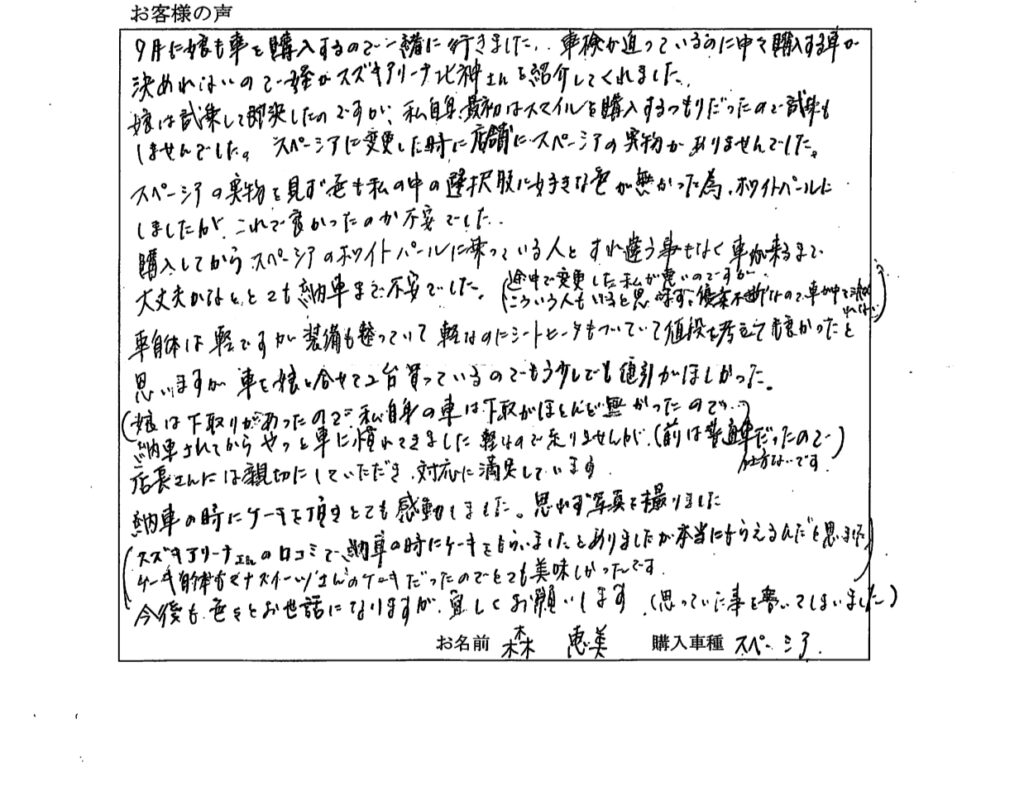 お客様の声
9月に娘も車を購入するので一緒に行きました。車検が迫っているのに中々購入する車が
決めれないので姪がスズキアリーナ北神さんを紹介してくれました。
娘は試乗して即決したのですが、私自身最初はスマイルを購入するつもりだったので試乗も
しませんでした。スペーシアに変更した時に店舗にスペーシアの実物がありませんでした。
スペーシアの実物を見ず色も私の中の選択肢に好きな色が無かった為、ホワイトパールに
しましたが、これで良かったのか不安でした。
購入してからスペーシアのホワイトパールに乗っている人とすれ違う事もなく車が来るまで
大丈夫かなととても納車まで不安でした。(途中で変更した私が悪いのですが、
こういう人もいると思います。優柔不断なので、車が中々決め
れない)
車自体は軽ですが装備も整っていて軽なのにシートヒータもついていて値段を考えても良かったと
思いますが車を娘と合せて2台買っているのでもう少しでも値引がほしかった。
(娘は下取りがあったので、私自身の車は下取がほとんど無かったので…)
納車されてからやっと車に慣れてきました軽なので走りませんが、(前は普通車だったので)
仕方ないです。
店長さんには親切にしていただき、対応に満足しています。
納車の時にケーキを頂きとても感動しました。思わず写真を撮りました
(スズキアリーナさんの口コミで、納車の時にケーキをもらいましたとありましたが本当にもらえるんだと思いました)
ケーキ自体もスイーツさんのケーキだったのでとても美味しかったです。
今後も色々とお世話になりますが、宜しくお願いします。(思っていた事を書いてしまいました)
お名前 森 恵美 購入車種 スペーシア.